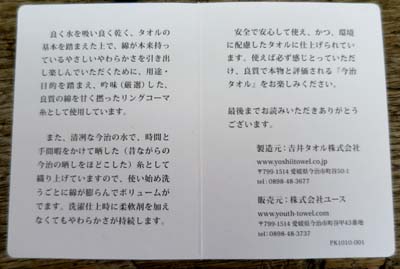 良く水を吸い良く乾く、タオルの
基本を踏まえた上で、綿が本来持っ
ているやさしいやわらかさを引き出
し楽しんでいただくために、用途・
目的を踏まえ、吟味（厳選）した、
良質の綿を甘く撚ったリングコーマ
糸として使用しています。
また、清冽な今治の水で、時間と
手間暇をかけて晒した（昔ながらの
今治の晒しをほどこした）糸として
織り上げていますので、使い始め洗
うごとに綿が膨らんでボリュームが
でます。洗濯仕上時に柔軟剤を加え
なくてもやわらかさが持続します。
安全で安心して使え、かつ、環境
に配慮したタオルに仕上げられてい
ます。使えば必ず感じとっていただ
け、良質で本物と評価される『今治
タオル』をお楽しみください。
最後までお読みいただきありがとう
ございます。
製造元：吉井タオル株式会社
www.yoshiitowel.co.jp
〒799-1514 愛媛県今治市町谷50-1
tel : 0898-48-3677
販売元：株式会社ユース
www.youth-towel.com
〒799-1514 愛媛県今治市町谷甲43番地
tel : 0898-48-3737
PK1010-001